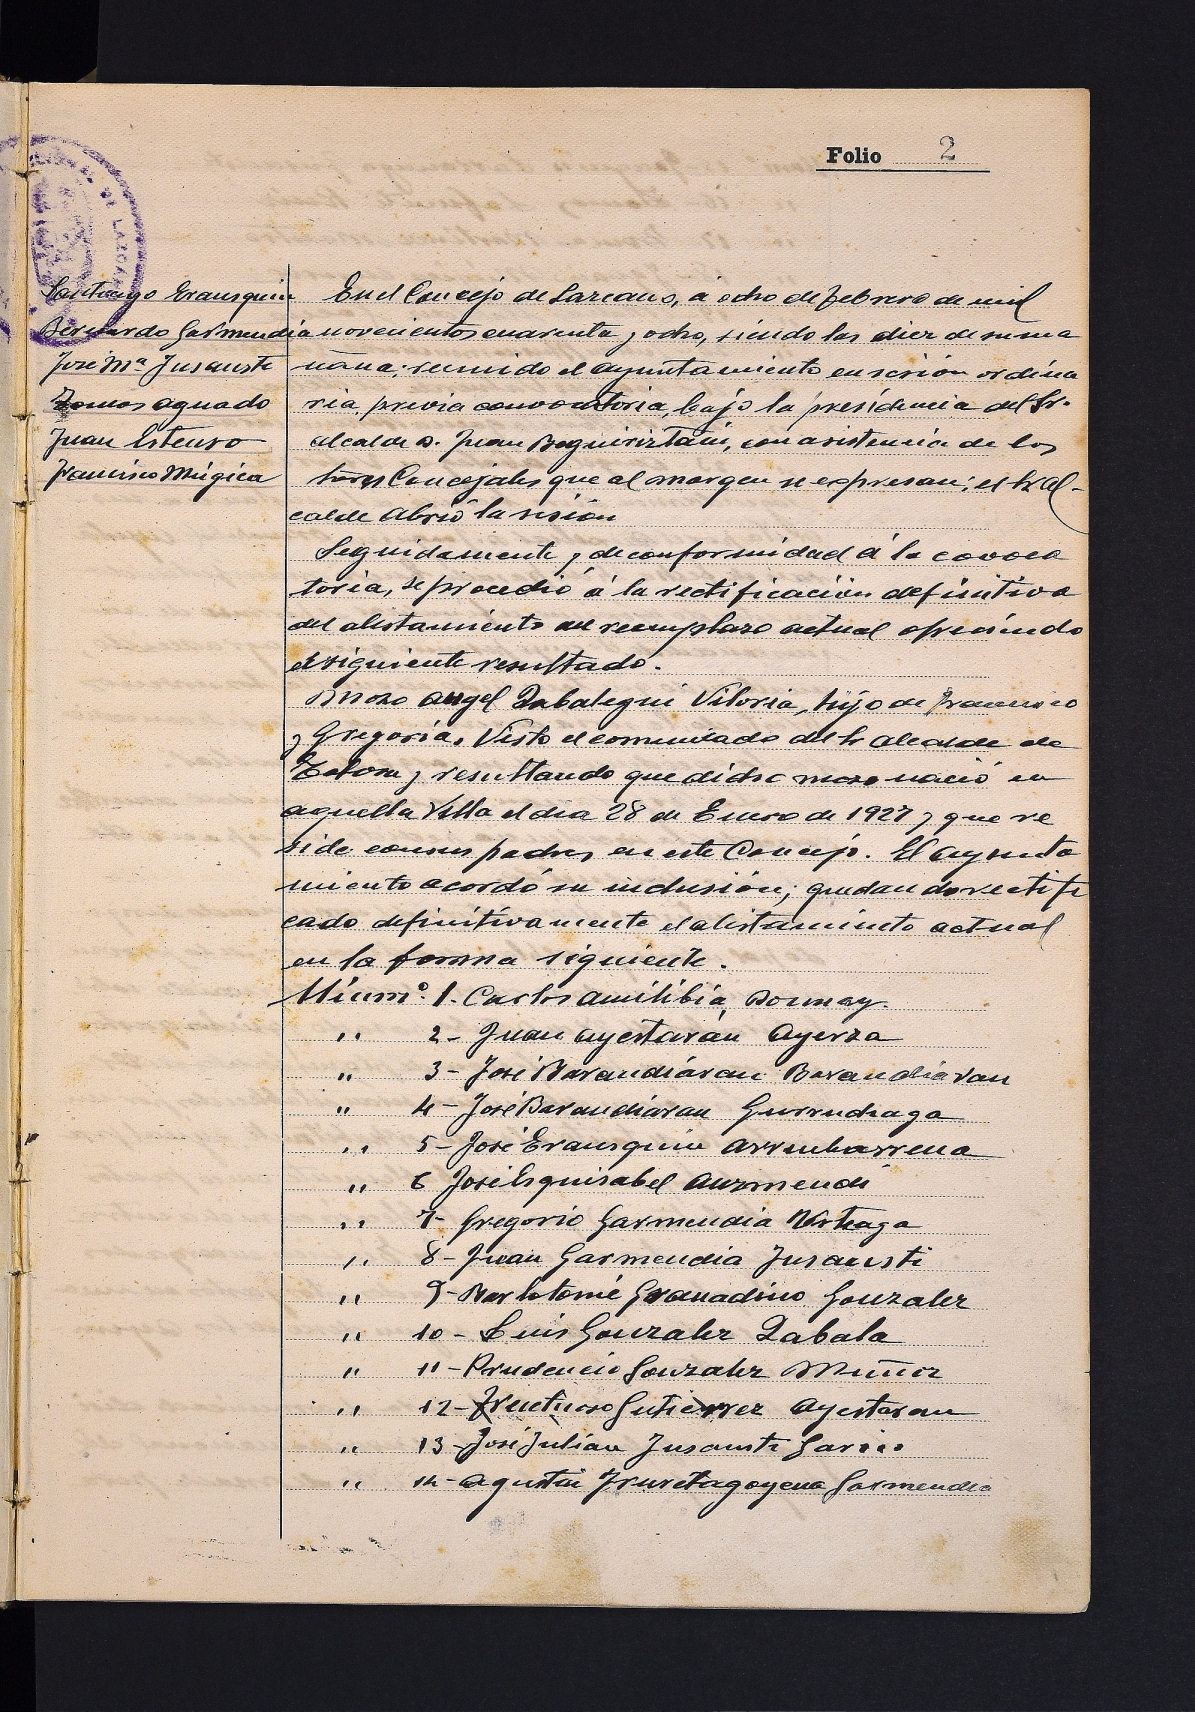 Folio 2
Santiago Erausquin
Bernardo Garmendia
José Mª Jusausti
Tomas Aguado
Juan Estenso
Francisco Múgica
En el Concejo de Lazcano, á ocho de febrero de mil
novecientos cuarenta y ocho, siendo las diez de su ma
ñana; reunido el ayuntamiento en sesión ordina
ria, previa convocatoria, bajo la presidencia del Sr.
alcalde D. Juan Beguiristáin, con asistencia de los
Sres Concejales que al margen se expresan; el Sr Al-
calde abrió la sesión
Seguidamente y de conformidad á la convoca
toria, se procedió á la rectificación definitiva
del alistamiento del reemplazo actual ofreciendo
el siguiente resultado.
Mozo Angel Zabalegui Vitoria, hijo de Francisco
y Gregoria. Visto el comunicado del Sr alcalde de
Tolosa y resultando que dicho mozo nació en
aquella Villa el dia 28 de Enero de 1927 y que re
side con sus padres en este Concejo. El ayunta
miento acordó su inclusión; quedando rectifi
cado definitivamente el alistamineto actual
en la forma siguiente.
Núm°. 1. Carlos Amilibia
" 2- Juan Ayestarán Ayerza
" 3- José Barandiáran Barandiaran
" 4- José Barandiaran Gurruchaga
" 5- José Erausquin Arrubarrena
" 6 José Esquisabel Auzmendi
" 7- Gregorio Garmendia Urteaga
" 8- Juan Garmendia Jusausti
" 9- Bartolomé Granadino Gonzalez
" 10- Luis Gonzalez Zabala
" 11- Prudencio Gonzalez Muñoz
" 12- Fructuoso Gutierrez Ayestaran
" 13- José Julian Jusausti Garcia
" 14- Agustin Iruretagoyena Garmendia